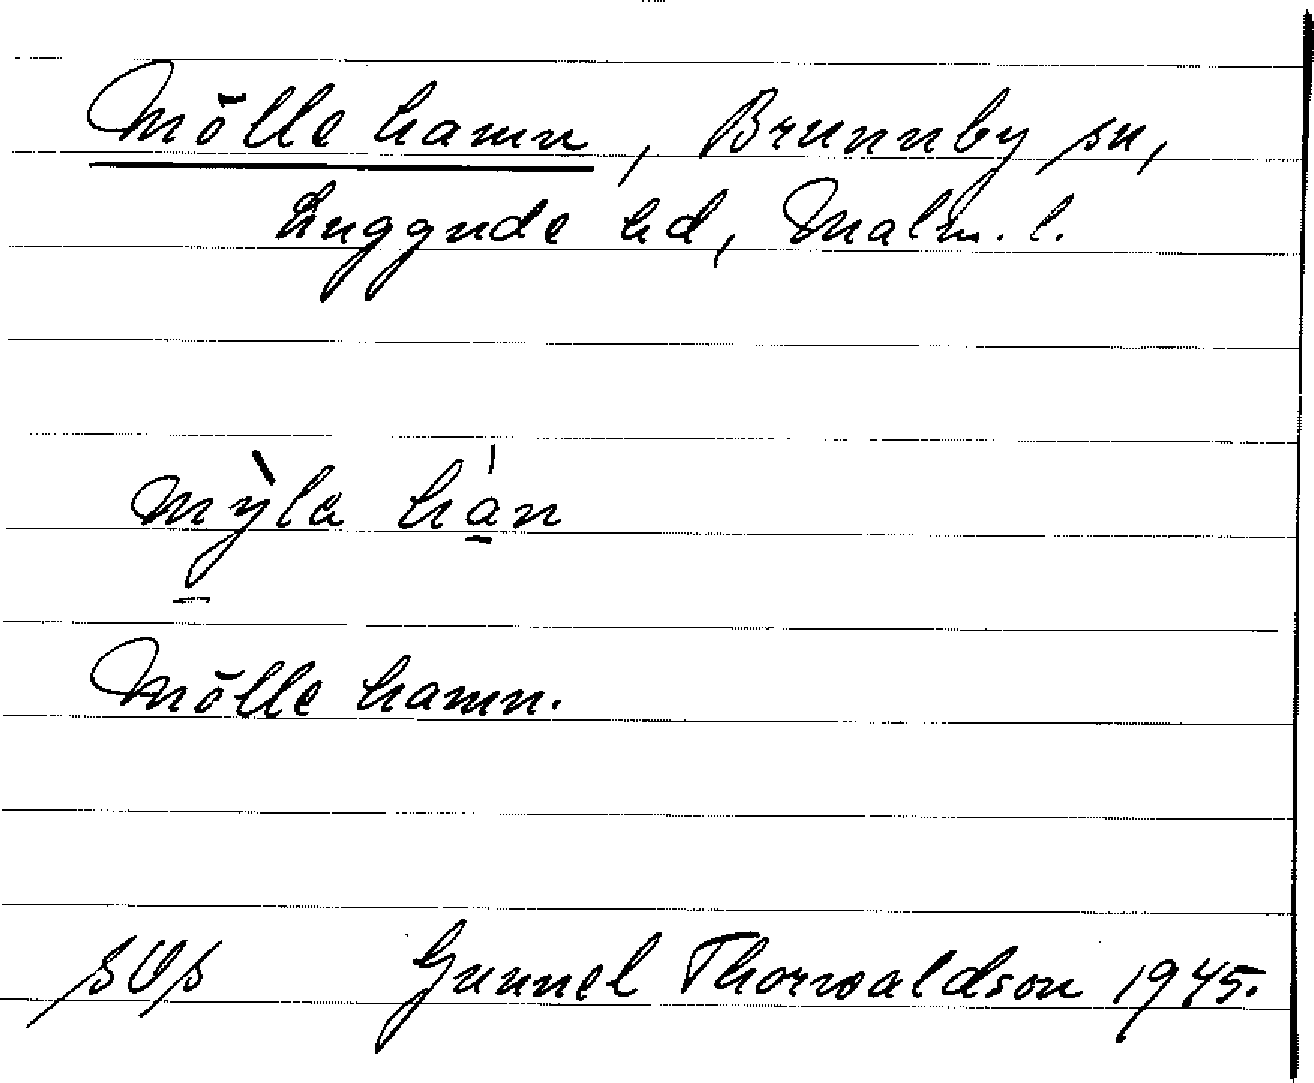 Mölle hamn, Brunnby sn,
Luggude hd, Malm. l.
mỳ̠la há̠n
Mölle hamn.
sOs Gunnel Thorwaldson 1945.